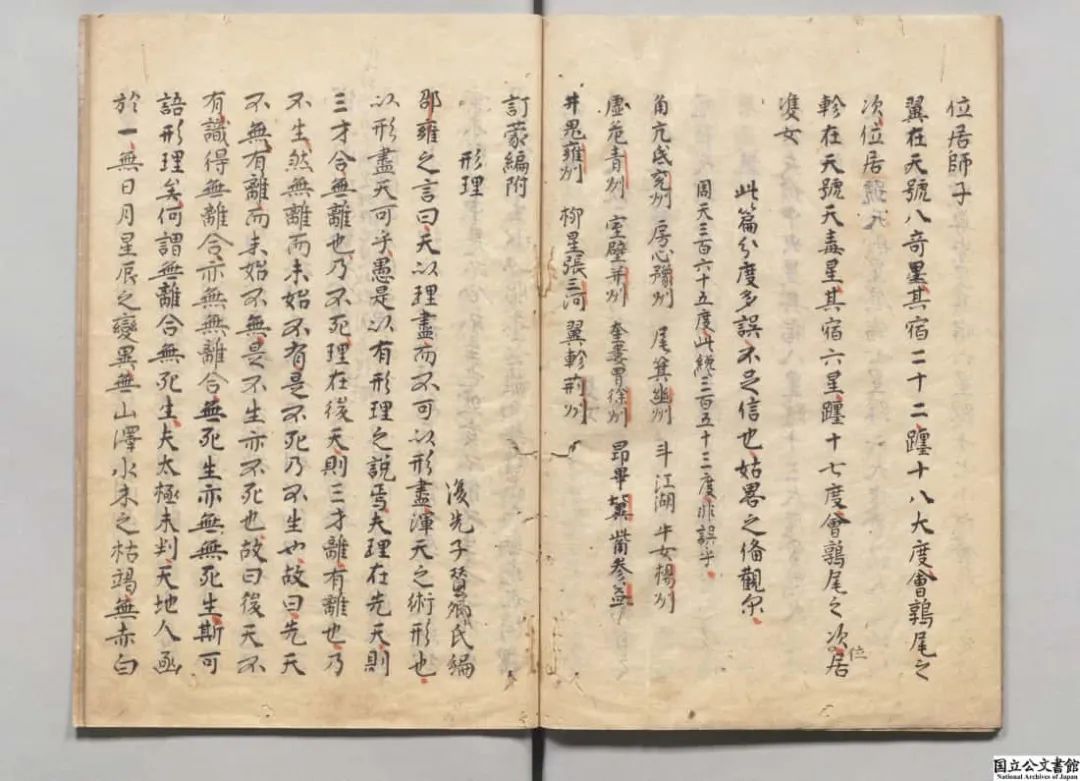 位居師子
翼在天號八奇星其宿二十二躔十八大度會鶉尾之
次位居號天
軫在天號天毒星其宿六星躔十七度會鶉尾之次位居
雙女
此篇分度多誤不足信也姑畧之俻觀尔
周天三百六十五度此緫三百五十三度非誤乎
角亢氐兗州 房心豫州 尾箕幽州 斗江湖 牛女楊州
虛危青州 室壁并州 奎婁胃徐州 昴畢冀 觜參益
井鬼雍州 柳星張三河 翼軫荊州
訂蒙編附
形理 後先子 氏編
邵雍之言曰天以理盡而不可以形盡渾天之術形也
以形盡天可乎愚是以有形理之說焉夫理在先天則
三才合無離也乃不死理在後天則三才離有離也乃
不生然無離而未始不有是不死乃不生也故曰先天
不無有離而未始不無是不生亦不死也故曰後天不
有識得無離合亦無無離合無死生亦無無死生斯可
語形理矣何謂無離合無死生夫太極未判天地人函
於一無日月星辰之變異無山澤水木之枯竭無赤白
国立公文書館
National Archives of Japan